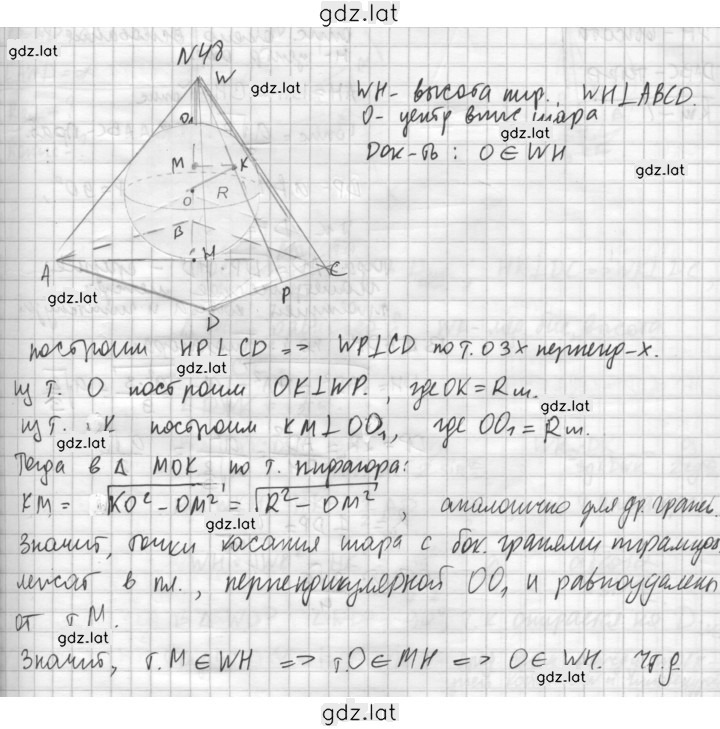 gdz.lat
N48
gdz.lat
W
gdz.lat
WH- высота пир., WH⊥ABCD.
O- центр впис шара
gdz.lat
Док-ть : O∈WH
gdz.lat
O₁
M
K
O
R
B
H
A
C
P
D
gdz.lat
построим HP⊥CD => WP⊥CD по т. о 3х перпенд-х.
gdz.lat
из т. O построим OK⊥WP., где OK=Rш.
gdz.lat
из т. K построим KM⊥OO₁, где OO₁=Rш.
gdz.lat
Тогда в Δ MOK по т. пифагора:
KM = √KO²-OM² = √R²-OM², аналогично для др. граней.
gdz.lat
Значит, точки касания шара с бок. гранями пирамиды
лежат в пл., перпендикулярной OO₁ и равноудалены
от т M.
gdz.lat
Значит, т. M∈WH => т.O∈MH => O∈WH. чт.д
gdz.lat
gdz.lat